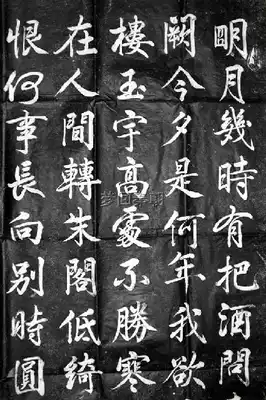 明月幾時有把酒問
闕今夕是何年我欲
樓玉宇高處不勝寒
在人間轉朱閣低綺
恨何事長向別時圓